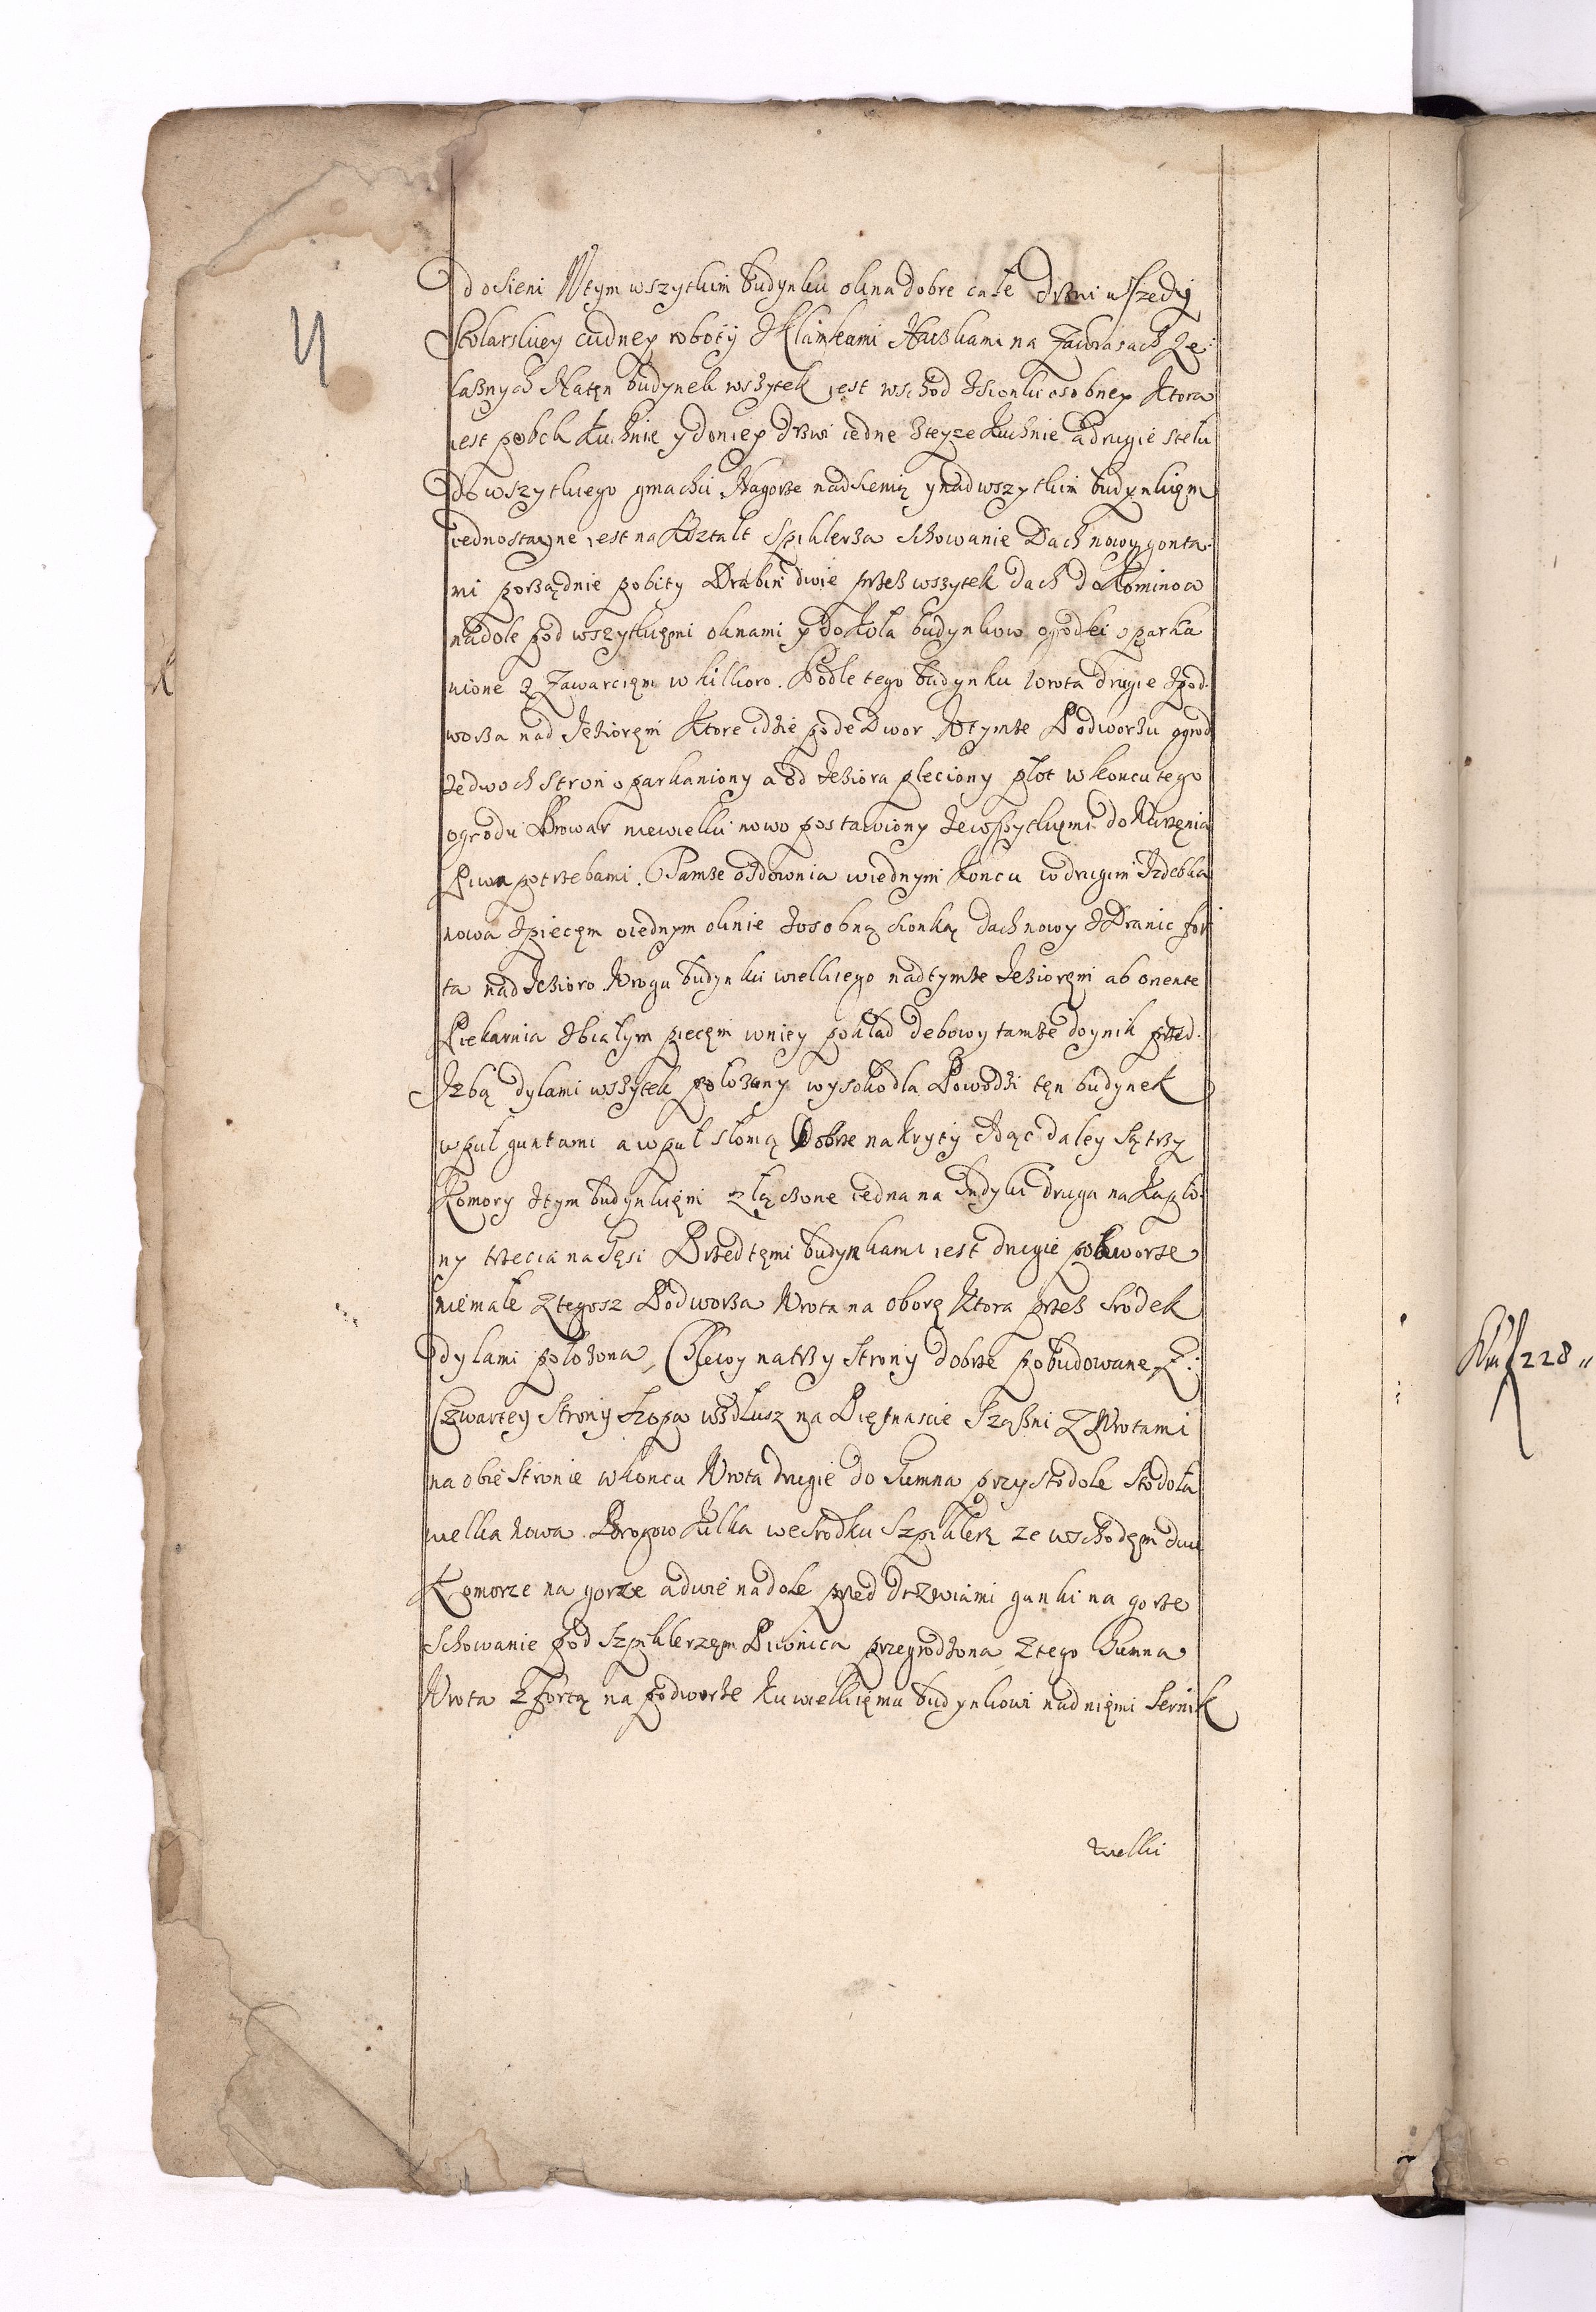 4
do sieni Wtym wszytkim budynku okna dobre całe Drzwi wszedy
Stolarskiey cudney roboty z Klamkami Haczkami na Zawiasach Że:
laznych Naten budynek wszytek iest wschod z sionki osobney Ktora
iest pobok Kuchnie y doniey Drzwi iedne z teyze Kuchnie a drugie stełu
do wszytkiego gmachu Nagorze nadsienią y nad wszytkim budynkięm
iednostayne iest na Kształt Spiklerza Schowanie Dach nowy gonta:
mi porządnie pobity Drabin dwie przez wszytek dach do Kominow
nadole pod wszytkięmi oknami y dokoła budynkow ogrodki oparka
nione z Zawarcięm wkilkoro. Podle tego budynku Wrota drugie z pod:
worza nad Jezioręm Ktore idzie pode Dwor Wtymże Podworzu ogrod
ze dwoch stron oparkaniony a od Jeziora pleciony płot wkoncu tego
ogrodu Browar niewielki nowo postawiony ze wszytkięmi do Warzęnia
Piwa potrzebami. Tamże ozdownia wiednym Koncu wdrugim Izdebka
nowa z piecęm o iednym oknie z osobną sionką dach nowy z Dranic for:
ta nad Jezioro Wrogu budynku wielkiego nad tymże Jezioręm ab oriente
Piekarnia z białym piecęm wniey pokład debowy tamże doynik przed:
Izbą dylami wszytek położony wysoko dla Powodzi tęn budynek
wpuł guntami a wpuł słomą Dobrze nakryty Idąc daley są trzy
Komory z tym budynkięm złączone iedna na Indyki druga na Kapło:
ny trzecia na Gęsi Przed tęmi budynkami iest drugie podworze
niemałe Ztegosz Podworza Wrota na oborę Ktora przez srodek
dylami położona, Chlewy na trzy strony dobrze pobudowane, Z:
Czwartey strony szopa wzdłusz na Piętnascie Sząźni Z Wrotami
na obie stronie wkoncu Wrota drugie do Gumna przy stodole Stodoła
wielka nowa Brogow Kilka we srodku Szpiklerz ze wschodęm dwie
Komorze na gorze a dwie na dole przed drzwiami ganki na gorze
Schowanie pod Szpiklerzęm Piwnica przegrodzona Ztego Gumna
Wrota z fortą na podworze Ku wielkięmu budynkowi nad nięmi Sernik
wielki
228